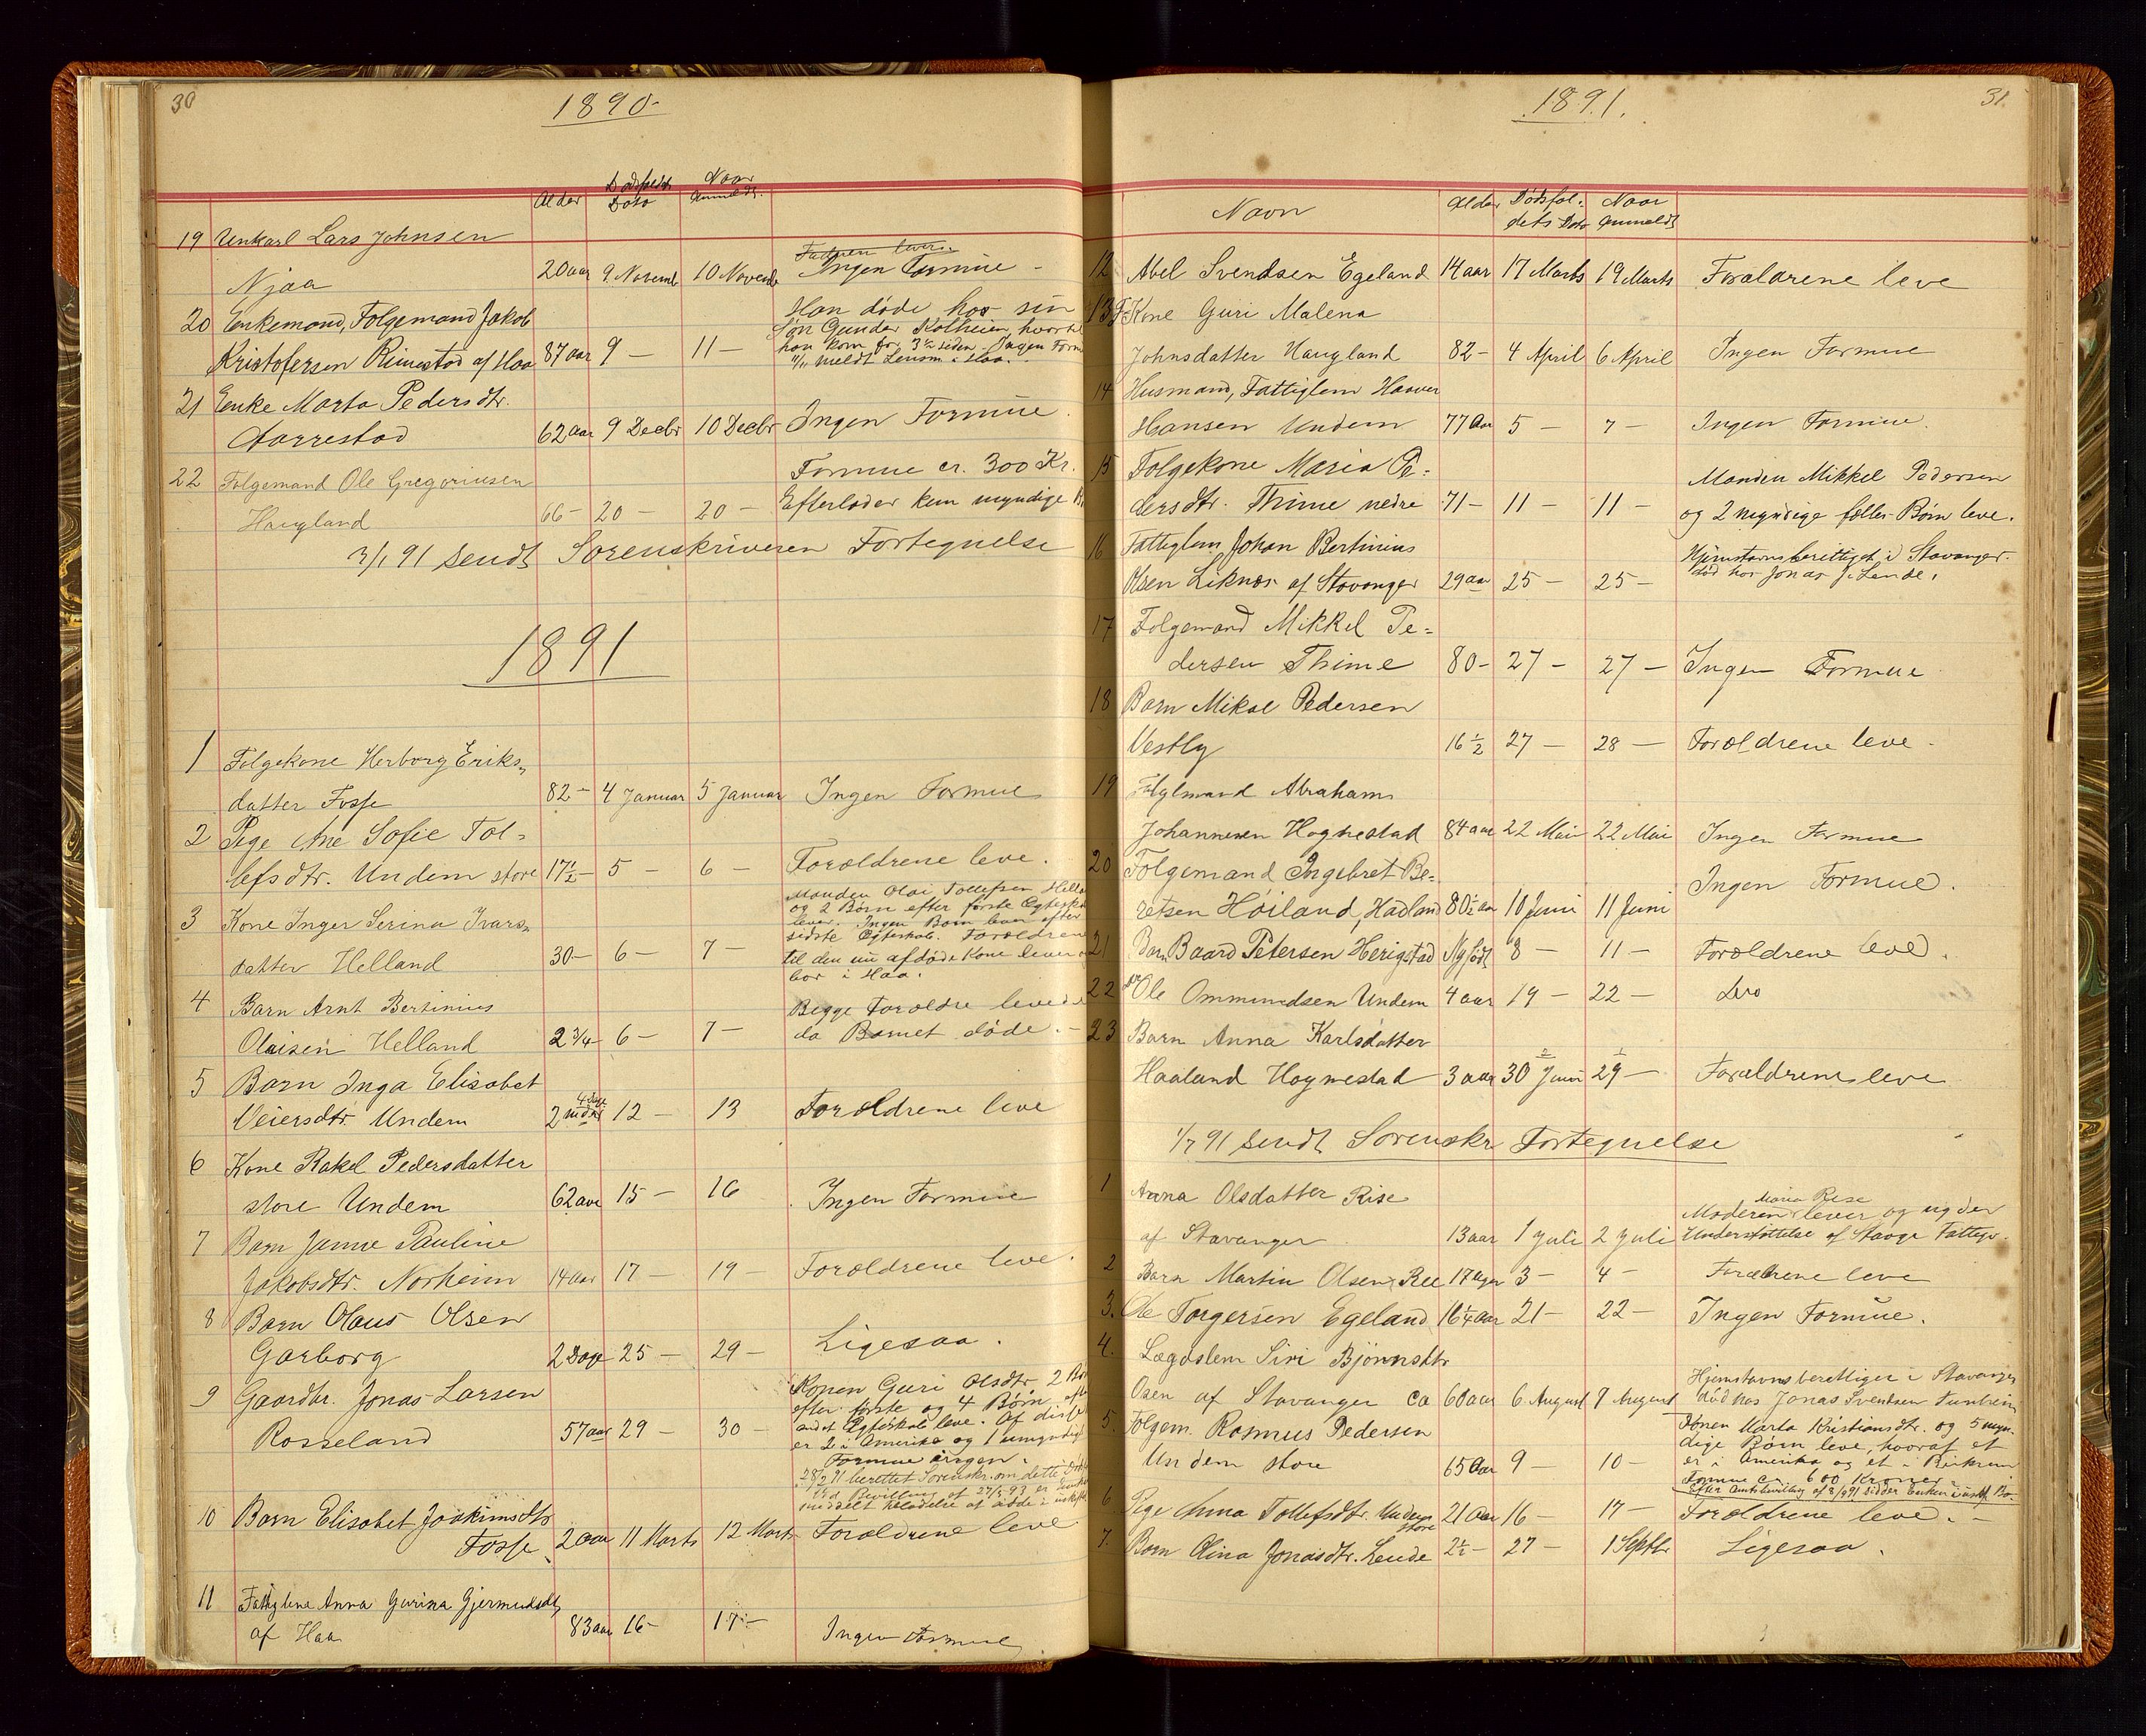 30
1890
Alder
Dødsfaldets Dato
Naar Anmeldt.
19 Unkarl Lars Johnsen
Njaa
20 aar 9 Novemb 10 Novemb
Faderen lever.
Ingen Formue -
20 Enkemand, Folgemand Jakob
Kristofersen Rimestad af Haa
87 aar 9 - 11 -
Han døde hos sin
Søn Gunder Kolheien, hvortil
han kom for 3 1/2 siden. Ingen Form
11/11 meldt Lensm. i Haa.
21 Enke Marta Pedersdtr.
Aarrestad
62 aar 9 Decbr 10 Decbr Ingen Formue.
22 Folgemand Ole Gregoriusen
Haugland
66 - 20 - 20 -
Formue cr. 300 Kr.
Efterlader kun myndige B
3/1 91 sendt Sorenskriveren Fortegnelse
1891
1 Folgekone Herborg Eriks-
datter Fosse 82 - 4 Januar 5 Januar Ingen Formue
2 Pige Ane Sofie Tol-
lefsdtr. Undem store 17 1/2 - 5 - 6 - Forældrene leve.
3 Kone Inger Serina Ivars-
datter Helland 30 - 6 - 7 -
Manden Olai Tollefsen Hella
og 2 Børn efter første Egteska
lever. Ingen Børn lever efter
sidste Egteskab. Forældrene
til den nu afdøde Kone lever
bor i Haa.
4 Barn Arnt Bertinius
Olaisen Helland 2 3/4 - 6 - 7 -
Begge Forældre levede
da Barnet døde. -
5 Barn Inga Elisabet
Veiersdtr. Undem 2 mdr 4 Dage 12 - 13 Forældrene leve
6 Kone Rakel Pedersdatter
store Undem 62 aar 15 - 16 Ingen Formue
7 Barn Janne Pauline
Jakobsdtr. Norheim 14 aar 17 - 19 - Forældrene leve.
8 Barn Olaus Olsen
Garborg 2 Dage 25 - 29 - Ligesaa.
9 Gaardbr. Jonas Larsen
Rosseland 57 aar 29 - 30 -
Konen Guri Olsdtr 2 Bø
efter første og 4 Børn efte
andet Egteskab leve. Af disse
er 2 i Amerika og 1 umyndig
Formue ingen.
28/2 91 berettet Sorenskr. om dette
Ved Bevilling af 27/2 93 er
meddelt
10 Barn Elisabet Joakimsdtr
Fosse 2 aar 11 Marts 12 Marts Forældrene leve
11 Fattiglem Anna Gurina Gjermundsdtr
af Haa 83 aar 16 - 17 - Ingen Formue.
31
1891.
Navn
Alder
Dødsfal-
dets Dato
Naar
Anmeldt
12 Abel Svendsen Egeland 14 aar 17 Marts 19 Marts Forældrene leve
13 F. Kone Guri Malena
Johnsdatter Haugland 82 - 4 April 6 April Ingen Formue
14 Husmand, Fattiglem Haaver
Hansen Undem 77 Aar 5 - 7 - Ingen Formue.
15 Folgekone Maria Pe-
dersdtr. Thime nedre 71 - 11 - 11 -
Manden Mikkel Pedersen
og 2 myndige fælles Børn leve.
16 Fattiglem Johan Bertinius
Olsen Liknæs af Stavanger 29 aar 25 - 25 -
Hjemstavnsberettiget i Stavanger.
død hos Jonas J. Lende.
17 Folgemand Mikkel Pe-
dersen Thime 80 - 27 - 27 - Ingen Formue
18 Barn Mikal Pedersen
Vestly 16 1/2 27 - 28 - Forældrene leve.
19 Folgemand Abraham
Johannesen Hognestad 84 aar 22 Mai 22 Mai Ingen Formue
20 Folgemand Ingebret Be-
retsen Høiland, Hadland 80 1/2 aar 10 Juni 11 Juni Ingen Formue.
21 Barn Baard Petersen Herigstad Nyfødt 8 - 11 - Forældrene leve.
22 Ole Ommundsen Undem 4 aar 19 - 22 - Do
23 Barn Anna Karlsdatter
Haaland Hognestad 3 aar 30 Juni 29 - Forældrene leve
1/7 91 sendt Sorenskr Fortegnelse
1 Anna Olsdatter Rise
af Stavanger 13 aar 1 Juli 2 Juli
Maria Rise
Moderen lever og nyder
Understøttelse af Stavge Fattigv.
2 Barn Martin Olsen Ree 17 Uger 3 - 4 - Forældrene leve
3. Ole Torgersen Egeland 16 1/4 aar 21 - 22 - Ingen Formue.
4. Lægdslem Siri Bjørnsdtr
Osen af Stavanger ca 60 aar 6 August 7 August
Hjemstavnsberettiget i Stavanger
død hos Jonas Svendsen Tunheim
5. Folgem. Rasmus Pedersen
Undem store 65 Aar 9 - 10 -
Konen Marta Kristiansdtr. og 5 myn-
dige Børn leve, hvoraf et
er i Amerika og et i Birkrem
Formue ca 600 Kroner.
Efter Amtsbevilling af 3/9 91 sidder Enken i uskft. Bo.
6 Pige Anna Tollefsdtr. Undem store 21 Aar 16 - 17 - Forældrene leve. -
7. Barn Olina Jonasdtr. Lende 2 1/2 - 27 - 1 Septbr Ligesaa.